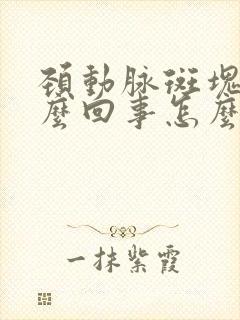 頚動脉斑塊
麼回事怎麼
一抹紫霞